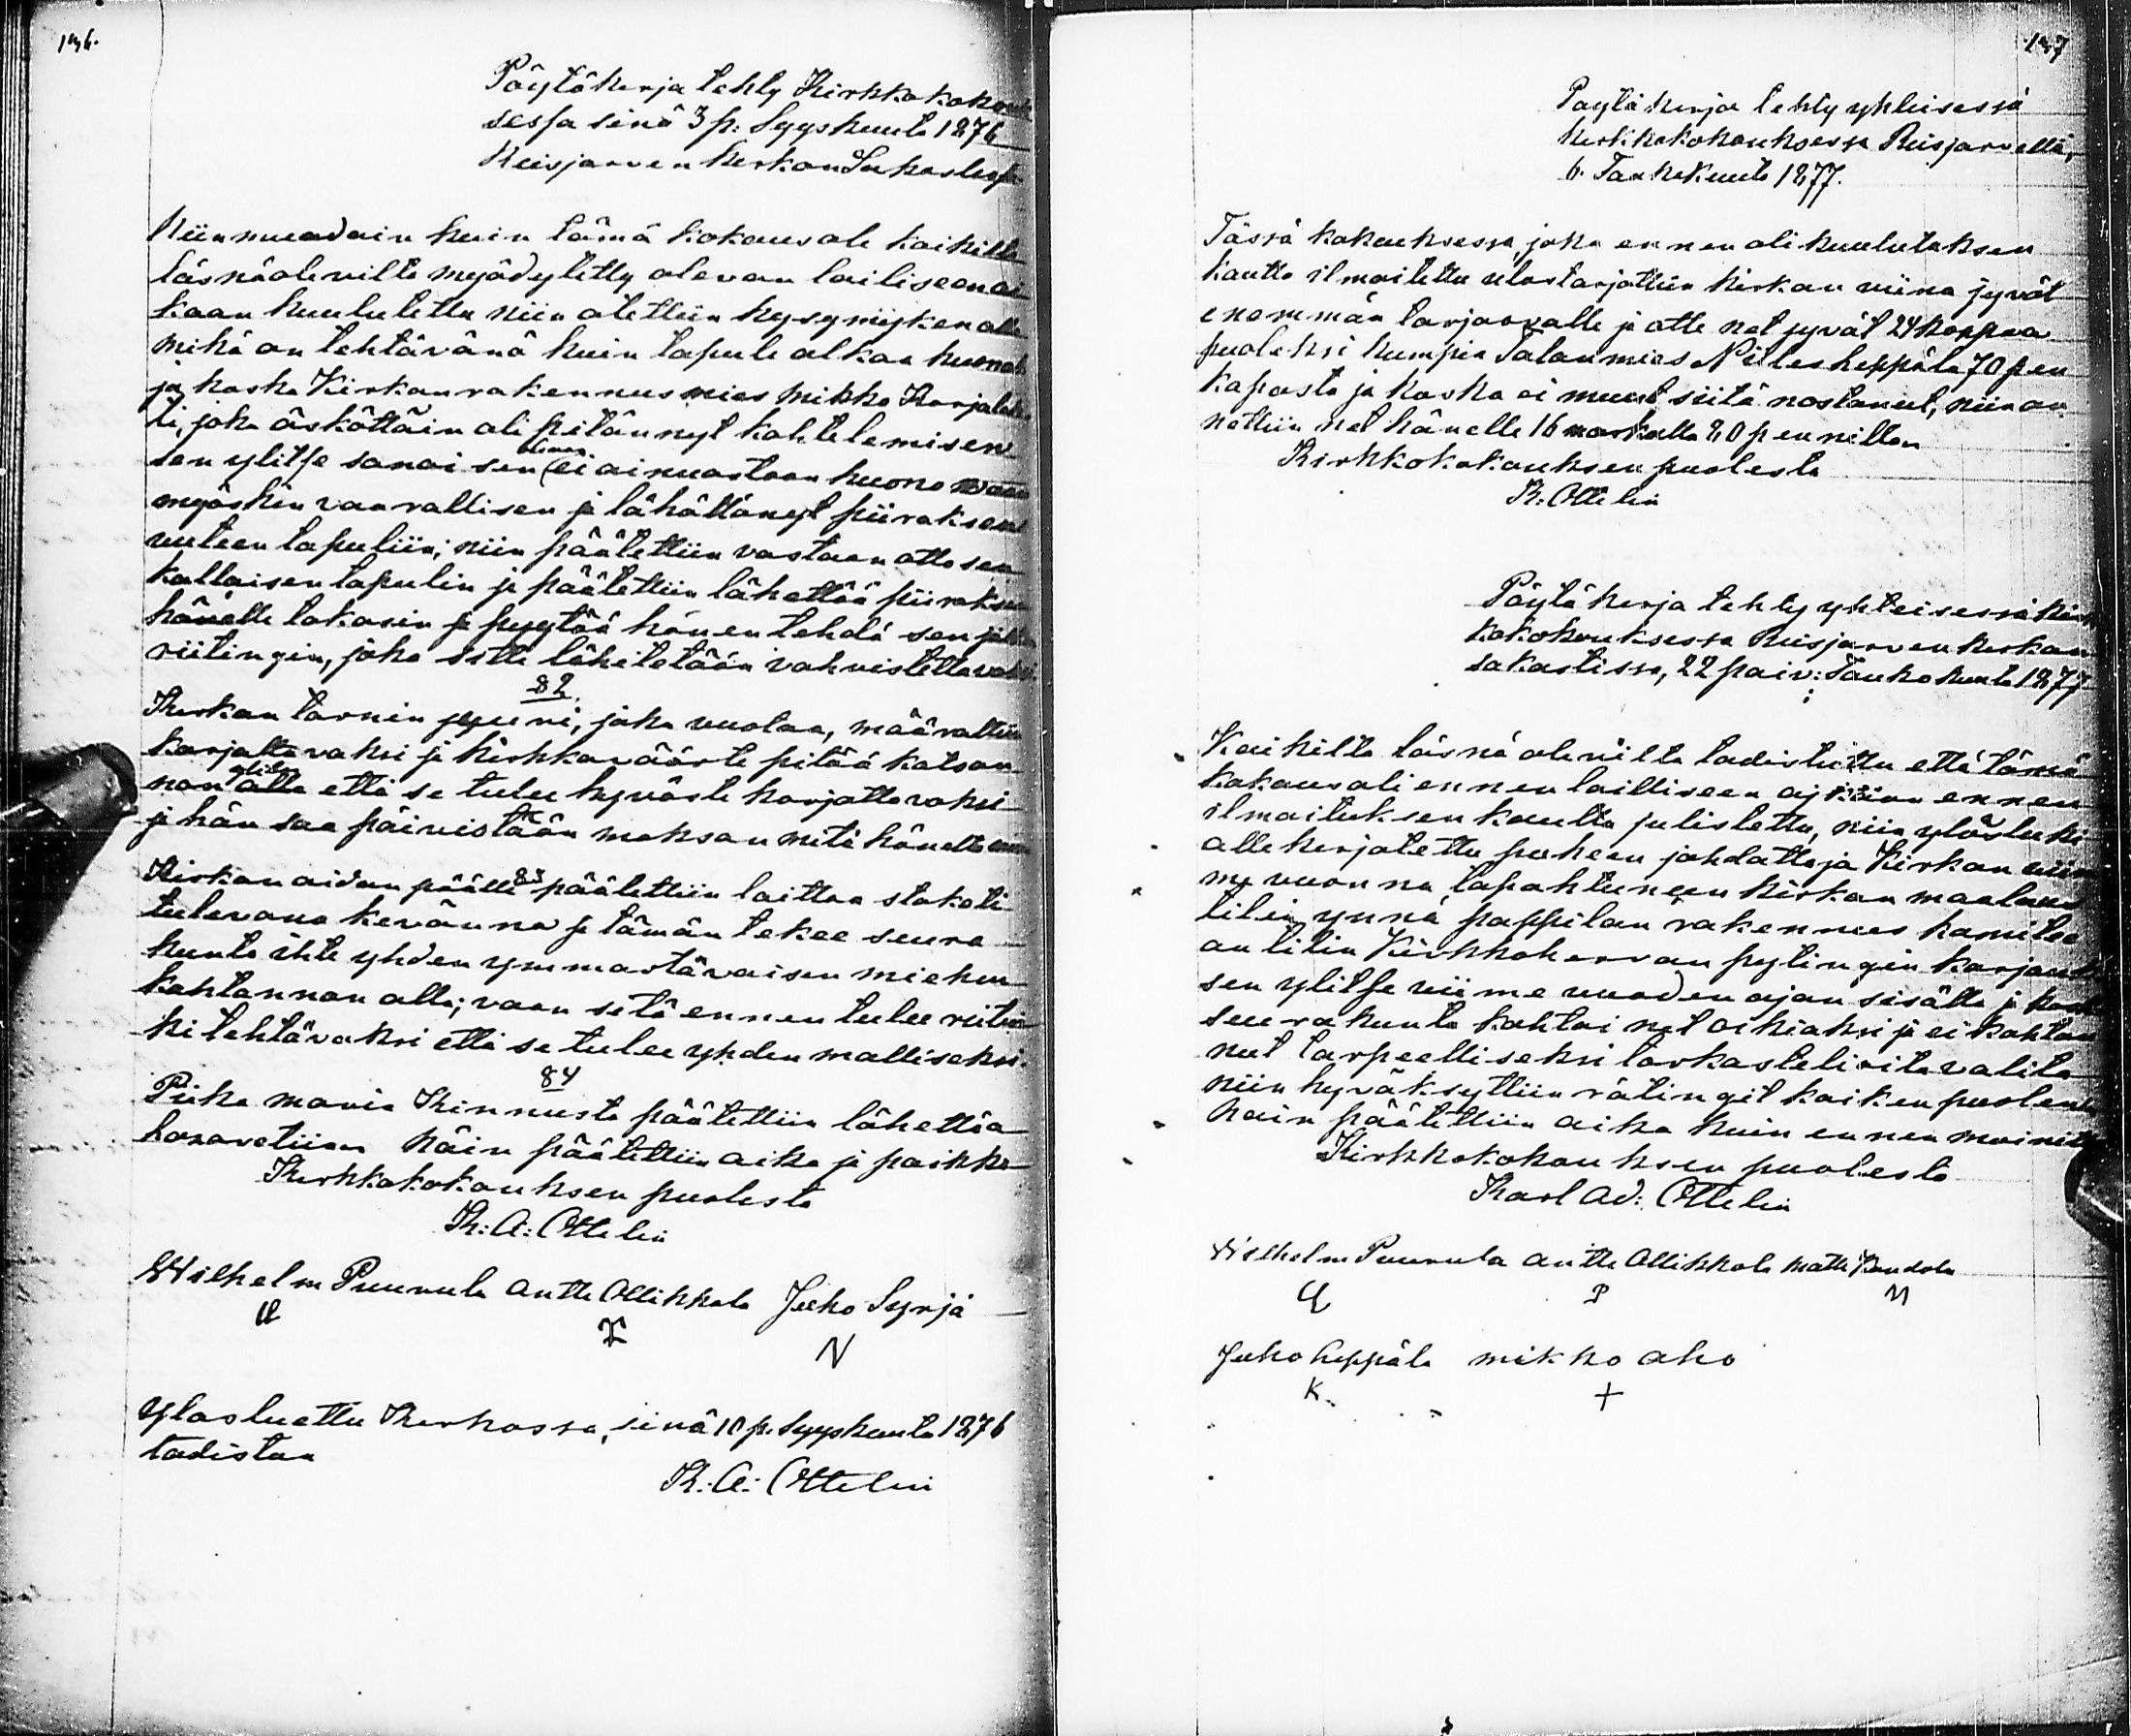 146.
Pöytäkerja tehty Kirkkokokouk
sessa sinä 3 p: Syyskuuta 1876
Reisjarven kerkon Sakastissa
Niinmuodoin kuin tämä kokous ole kaikilta
läsnäolevilta myödytetty olevan lailiseen ai
kaan kuulutettu niin otettiin kysymyksen alle
mikä on tehtävänä kuin tapuli alkaa huonot
ja koska Kirkonrakennusmies Mikko Karjalah
ti, joka äsköttäin oli pitännyt kahtelemisen
sen ylitse sanoi sen olevan ei ainuastaan huono waan
myöskin vaarallisen ja lähättänyt piiraksen
uuteen tapuliin; niin päätettiin vastaan otta sen
kaltaisen tapulin ja päätettiin lähettää piiraksen
hänelle takasin ja pyytää hänen tehdä sen jälken
riitingin, joka sitte lähitetään vahvistettavaksi
82.
Kerkon tornin juuri, joka vuotaa, määrattiin
korjattavaksi ja kirkkoväärte pitää katson
non alla että se tulee hyväste korjattavaksi
ja hän saa päivistään maksan mitä hänelle
83
Kirkon aidan päälle päätettiin laittaa staketi
tulevana kevännä ja tämän tekee seura
kunta ihte yhden ymmartäväisen miehen
kahtannon alla; vaan sitä ennen tulee riitin
ki tehtäväksi että se tulee yhden malliseksi.
84
Piika Maria Kinnusta päätettiin lähettää
lasarettiian Näin päätettiin aika ja paikka
Kerkkokokouksen puolesta
K: A: Ottelin
Wilhelm Puurula Antti Ollikkala Juho Syrjä
N
Ylösluettu Kerkossa, sinä 10 p. Syyskuuta 1876
todistaa
K: A: Ottelin
147
Pöytäkerja tehty yhteisessä
kerkkokokouksessa Reisjarvellä,
6. Taukokuuta 1877.
Tässä kokouksessa, joka ennen oli kuulutuksen
kautta ilmoitettu ulostarjottiin kirkon viina jyvät
enemmän tarjoovalle ja otte net jyvät 24 kappaa
puoleksi kumpia Talonmies Niiles Leppälä 70 pen
kapasta ja koska ei muut siitä nostaneet, niin an
nettiin net hänelle 16 markalla 80 pennillan
Kirkkokokouksen puolesta
K: Ottelin
Pöytäkerja tehty yhteisessä kirk
kokokouksessa Reisjarven kerkon
sakastissa, 22 paiv: Taukokuuta 1877
Kaikilta läsnä olevilta todistettu että tämä
kokous oli ennen lailliseen aikaan ennen
ilmoituksen kautta julistettu, niin ylösluki
allekirjotettu puheen johdattaja Kirkon viim
me vuonna tapahtuneen kirkon maalaus
tilin ynnä pappilan rakennus komitee
an tilin Kirkkoherran pytingin korjauk
sen ylitse viime vuoden ajan sisällä ja koska
seurakunta kahtoi net oikiaksi ja ei kahton
nut tarpeelliseksi tarkastelioita valita
niin hyväksyttiin rätingit kaiken puolen
Näin päätettiin aika kuin ennen mainittu
Kirkkokokouksen puolesta
Karl Ad: Ottelin
Wilhelm Puurula Antti Ollikkala Matti
P M
Juho Leppälä Mikko Aho
K. +